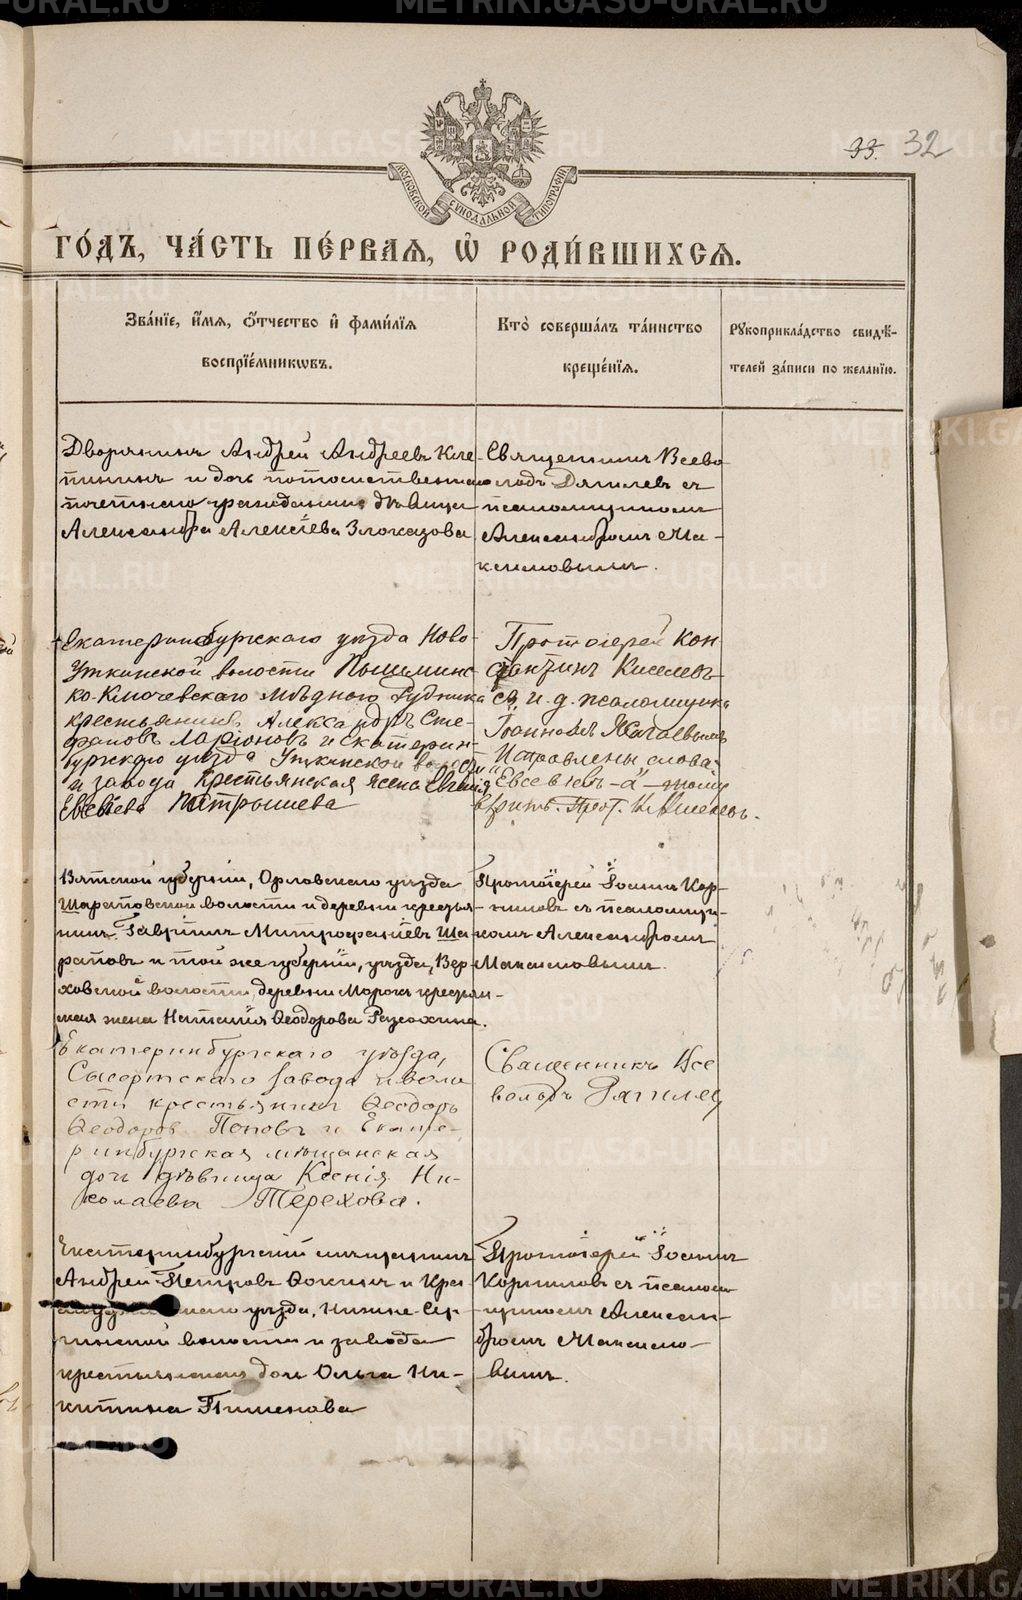 33. 32
МОСКОВСКОЙ СѴНОДАЛЬНОЙ ТИПОГРАФІИ
ГО́ДЪ, ЧА́СТЬ ПЕ́РВАѦ, Ѡ҆ РОДИ́ВШИХСѦ.
Зва́нїе, и҆́мѧ, ѻ҆́тчество и҆ фами́лїѧ
воспрїе́мникѡвъ.
Кто̀ соверша́лъ та́инство
креще́нїѧ.
Рꙋкоприкла́дство свидѣ́-
телей за́писи по жела́нїю.
Дворянинъ Андрей Андреевъ Кле-
пининъ и дочь потомственнаго
почетнаго гражданина дѣвица
Александра Алексѣева Злоказова
Священникъ Всево
лодъ Дягилевъ съ
псаломщикомъ
Александромъ Ма-
ксимовымъ.
Екатеринбургскаго уѣзда Ново-
Уткинской волости Пышминс-
ко-Ключевскаго мѣднаго рудника
крестьянинъ Александръ Сте-
фановъ Ларіоновъ и Екатерин-
бургскаго уѣзда Уткинской волости
и завода крестьянская жена Евгенія
Евсевіева Патрышева
Протоіерей Кон
стантинъ Киселевъ
съ и. д. псаломщика
Іоанномъ
Исправлены слова:
"Евсевіев-а"
вѣрить. Прот. К. Киселевъ.
Вятской губерніи, Орловскаго уѣзда
Шараповской волости и деревни крестья-
нинъ Гавріилъ Митрофаніевъ Ша-
раповъ и той же губерніи, уѣзда, Вер-
ховской волости, деревни крестьян-
ская жена Наталія Ѳеодорова
Протоіерей Іоаннъ Кор-
ниловъ съ псаломщи-
комъ Александромъ
Максимовымъ.
Екатеринбургскаго уѣзда,
Сысертскаго завода и воло
сти крестьянинъ Ѳеодоръ
Ѳеодоровъ Поповъ и Екате-
ринбургская мѣщанская
дочь дѣвица Ксенія Ни-
колаева Терехова.
Священникъ Все
володъ Дягилев
Екатеринбургскій мѣщанинъ
Андрей Петровъ Ѳокинъ и Кра
уѣзда, Нижне Сер-
гинской волости и завода
крестьянская дочь Ольга Ни-
китина Пименова
Протоіерей Іоаннъ
Корниловъ съ псалом
щикомъ Алексан-
дромъ Максимо-
вымъ.